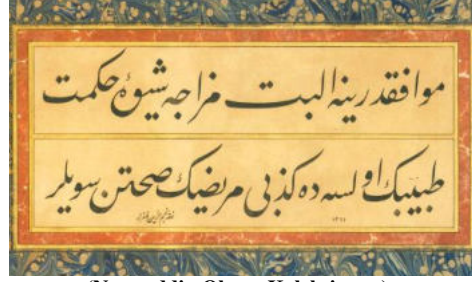 موافقدر ینه البت مزاجه شیوهٔ حکمت
طبیبك اولسه ده کذبی مریضك صحتن سویلر